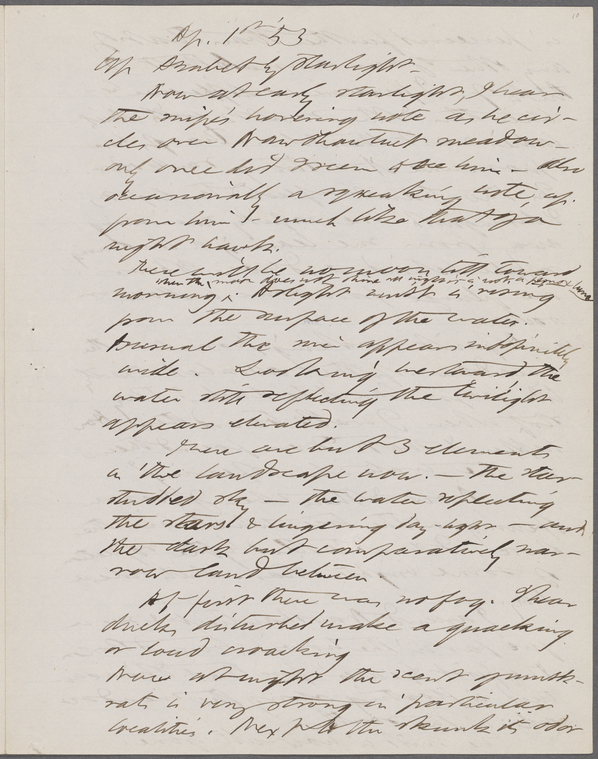 10
Ap. 1st '53
Up Assabet by starlight.
Now at early starlight, I hear
the snipe's hovering note as he cir-
cles over Nawshawtuct meadow —
only once did I seem to see him — also
occasionally a squeaking note,
from him — much like that of a
night hawk.
There will be no moon till toward
when the moon does not shine
morning. A slight mist is rising
from the surface of the water.
As usual the river appears indefinitely
wide. Looking westward the
water still reflecting the twilight
appears elevated.
There are but 3 elements
in the landscape now. — the star-
studded sky — the water reflecting
the stars & lingering day-light — and
the dark but comparatively nar-
row land between
At first there was no fog. I hear
ducks disturbed make a quacking
or loud croaking
Now at night the scent of musk-
rats is very strong in particular
localities. Next to the skunk its odor